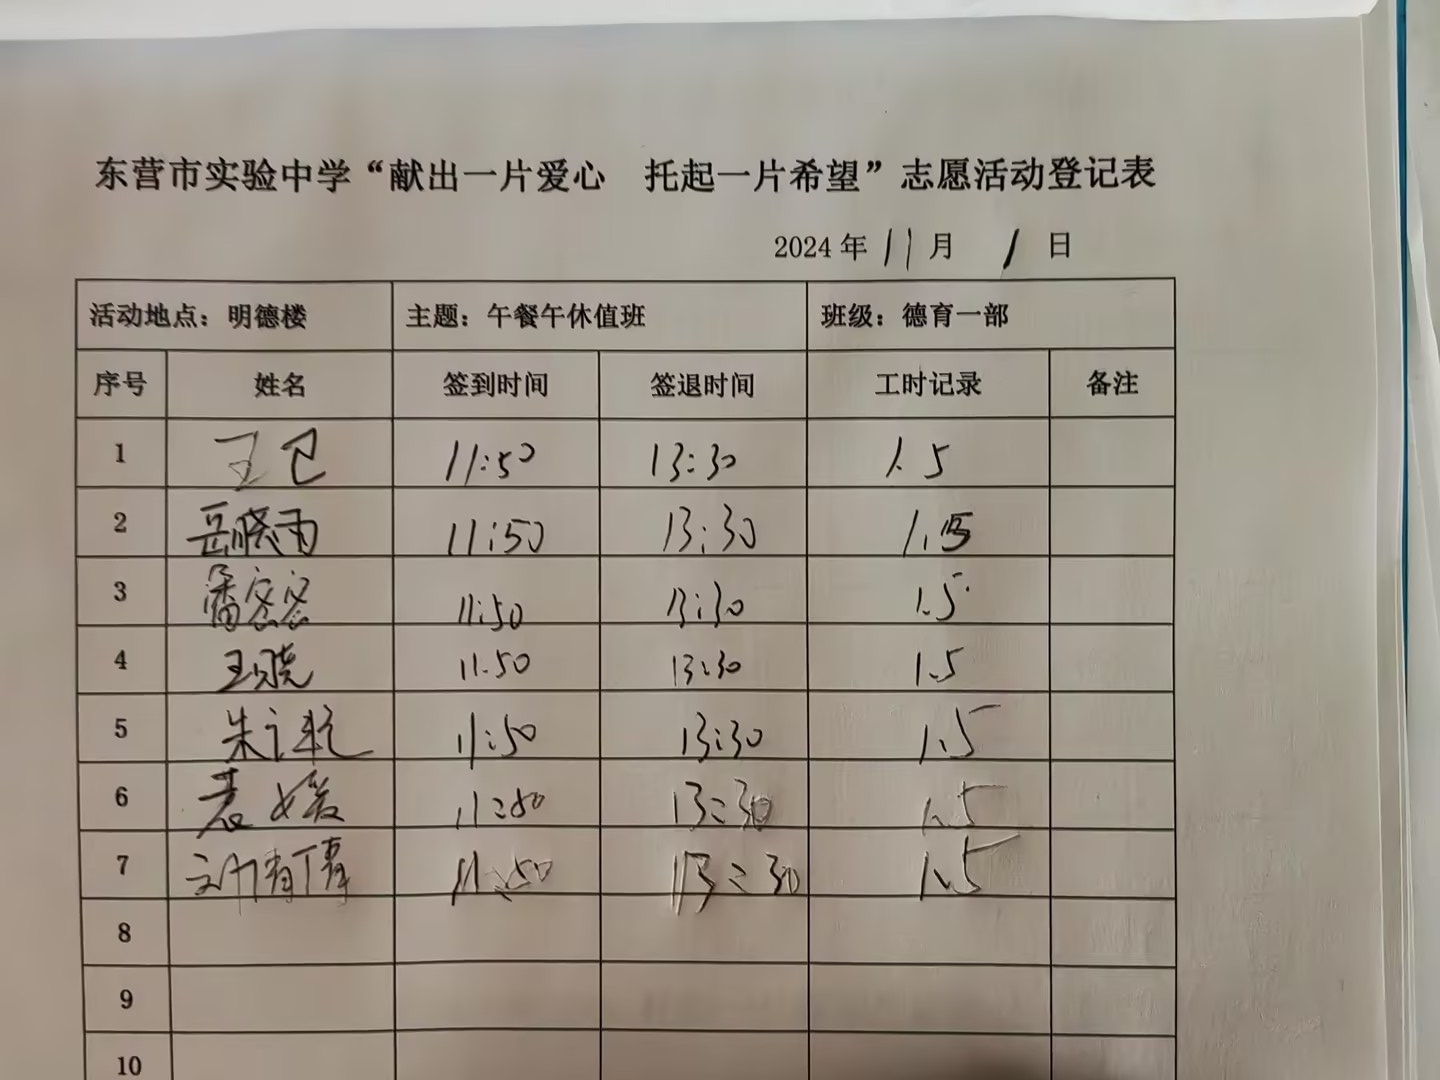 东营市实验中学“献出一片爱心 托起一片希望”志愿活动登记表
2024年11月1日
活动地点：明德楼 主题：午餐午休值班 班级：德育一部
序号 姓名 签到时间 签退时间 工时记录 备注
1 王 11:50 13:30 1.5
2 岳晓雨 11:50 13:30 1.5
3 潘密密 11:50 13:30 1.5
4 王晓 11.50 13:30 1.5
5 朱 11:50 13:30 1.5
6 袁媛 11:50 13:30 1.5
7 11:50 13:30 1.5
8
9
10